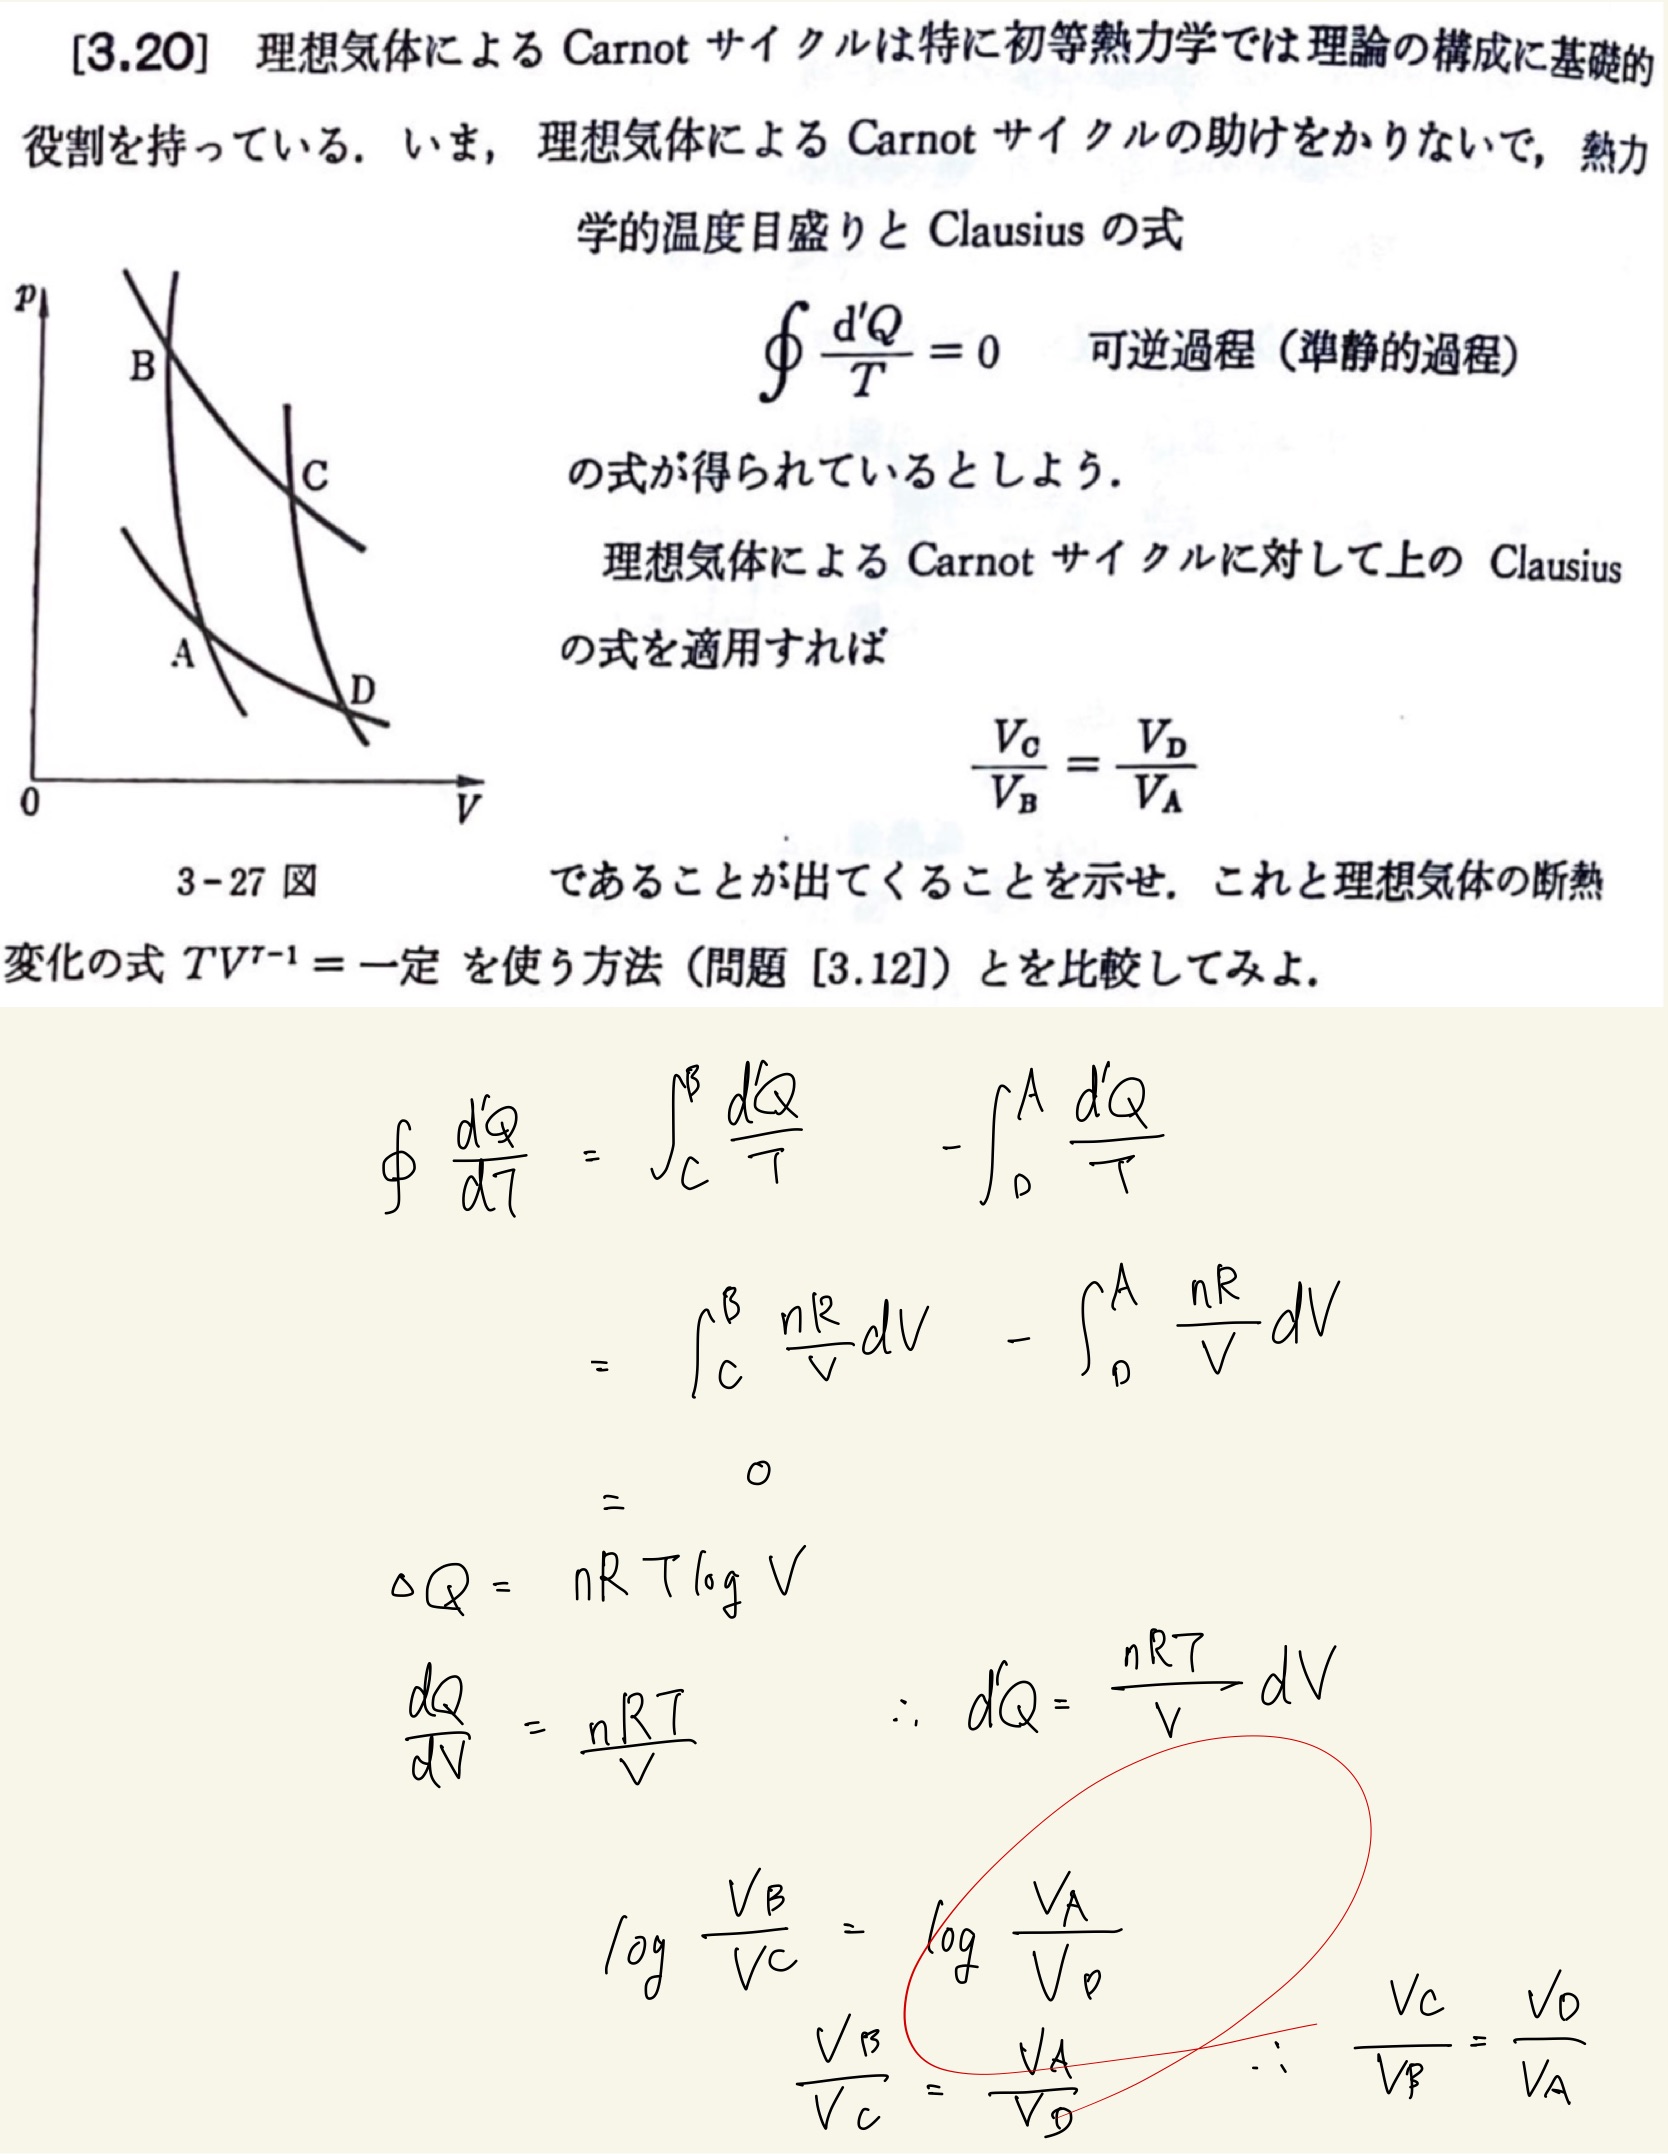 [3.20] 理想気体による Carnot サイクルは特に初等熱力学では理論の構成に基礎的
役割を持っている．いま，理想気体による Carnot サイクルの助けをかりないで，熱力
学的温度目盛りと Clausius の式
∮ d'Q/T = 0 可逆過程（準静的過程）
の式が得られているとしよう．
理想気体による Carnot サイクルに対して上の Clausius
の式を適用すれば
V_C/V_B = V_D/V_A
であることが出てくることを示せ．これと理想気体の断熱
変化の式 TV^{γ-1} = 一定 を使う方法（問題 [3.12]）とを比較してみよ．
p
B
C
A
D
0
V
3-27 図
∮ d'Q/dT = ∫_C^B d'Q/T - ∫_D^A d'Q/T
= ∫_C^B nR/V dV - ∫_D^A nR/V dV
= 0
△Q = nRT log V
dQ/dV = nRT/V ∴ d'Q = nRT/V dV
log VB/VC = log VA/VD
VB/VC = VA/VD ∴ VC/VB = VD/VA